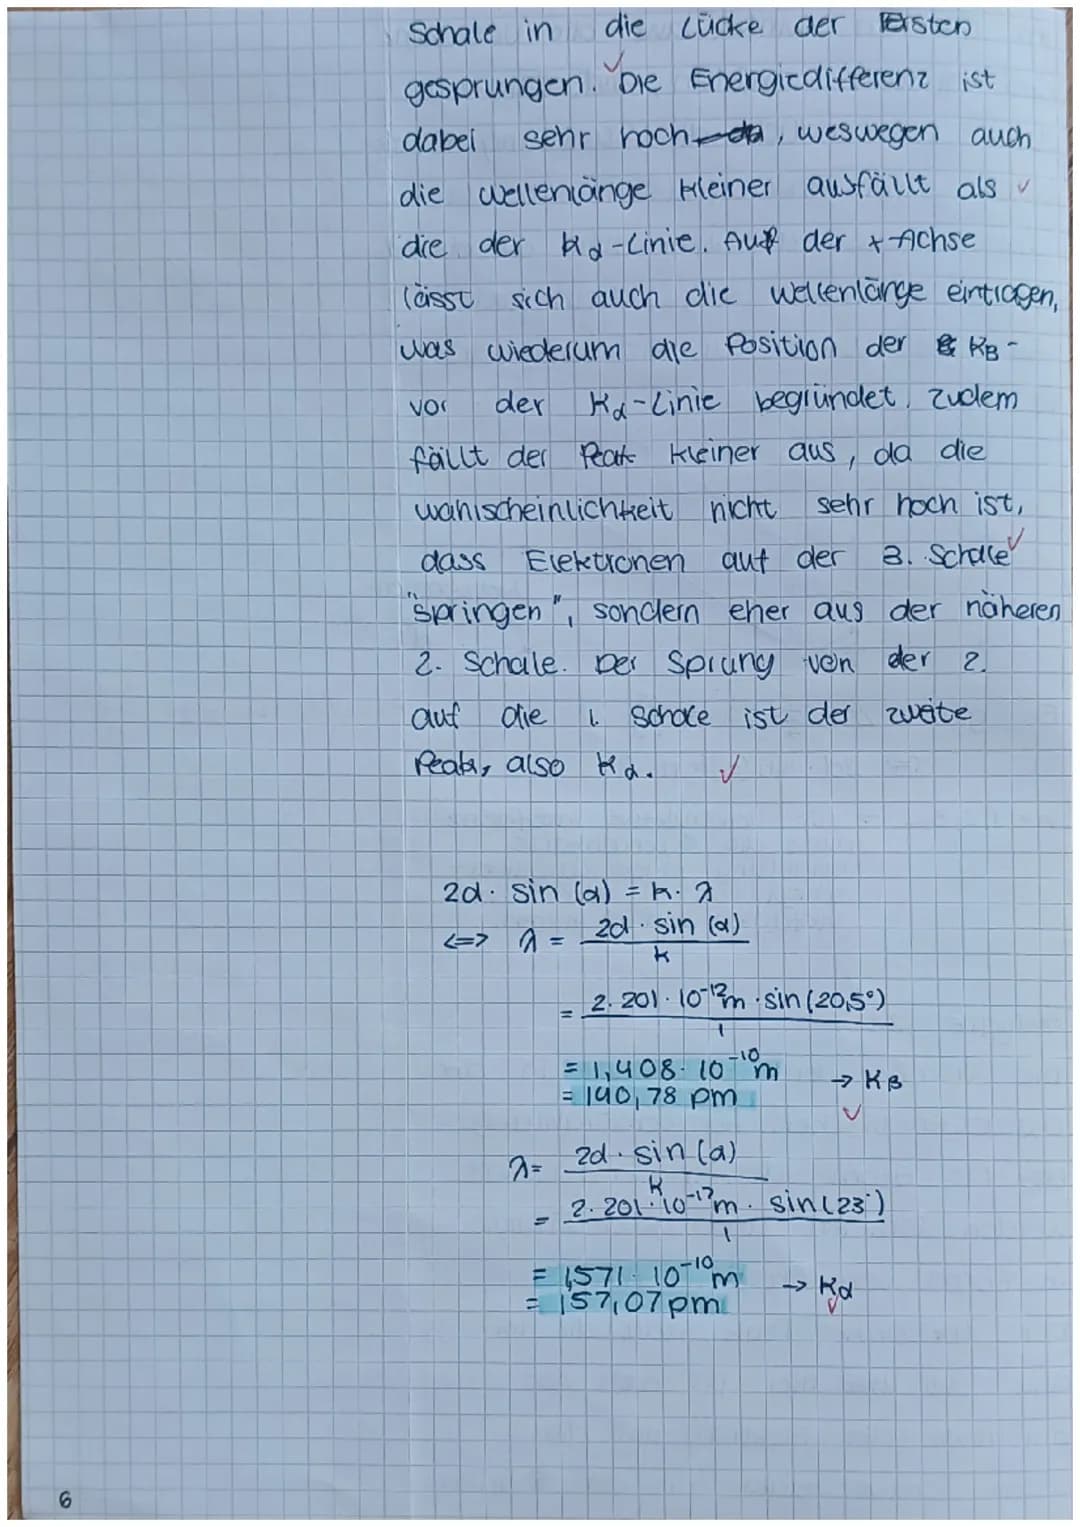 Schale in die Lücke der Ersten
gesprungen. Die Energiedifferenz ist
dabei sehr hoch, weswegen auch
die Wellenlänge kleiner ausfällt als
die der Kα-Linie. Auf der x-Achse
lässt sich auch die Wellenlänge eintragen,
was wiederum die Position der Kβ-
vor der Kα-Linie begründet. Zudem
fällt der Peak kleiner aus, da die
wahrscheinlichkeit nicht sehr hoch ist,
dass Elektronen auf der 3. Schale
"springen", sondern eher aus der näheren
2. Schale. Der Sprung von der 2.
auf die 1. Schale ist der zweite
Peak, also Kα.
2d · sin (α) = k · λ
<=> λ = 2d · sin (α) / k
= 2 · 201 · 10⁻¹² m · sin (20,5°) / 1
= 1,408 · 10⁻¹⁰ m → Kβ
= 140,78 pm
λ = 2d · sin (α) / k
= 2 · 201 · 10⁻¹² m · sin (23°) / 1
= 1,571 · 10⁻¹⁰ m → Kα
= 157,07 pm
6